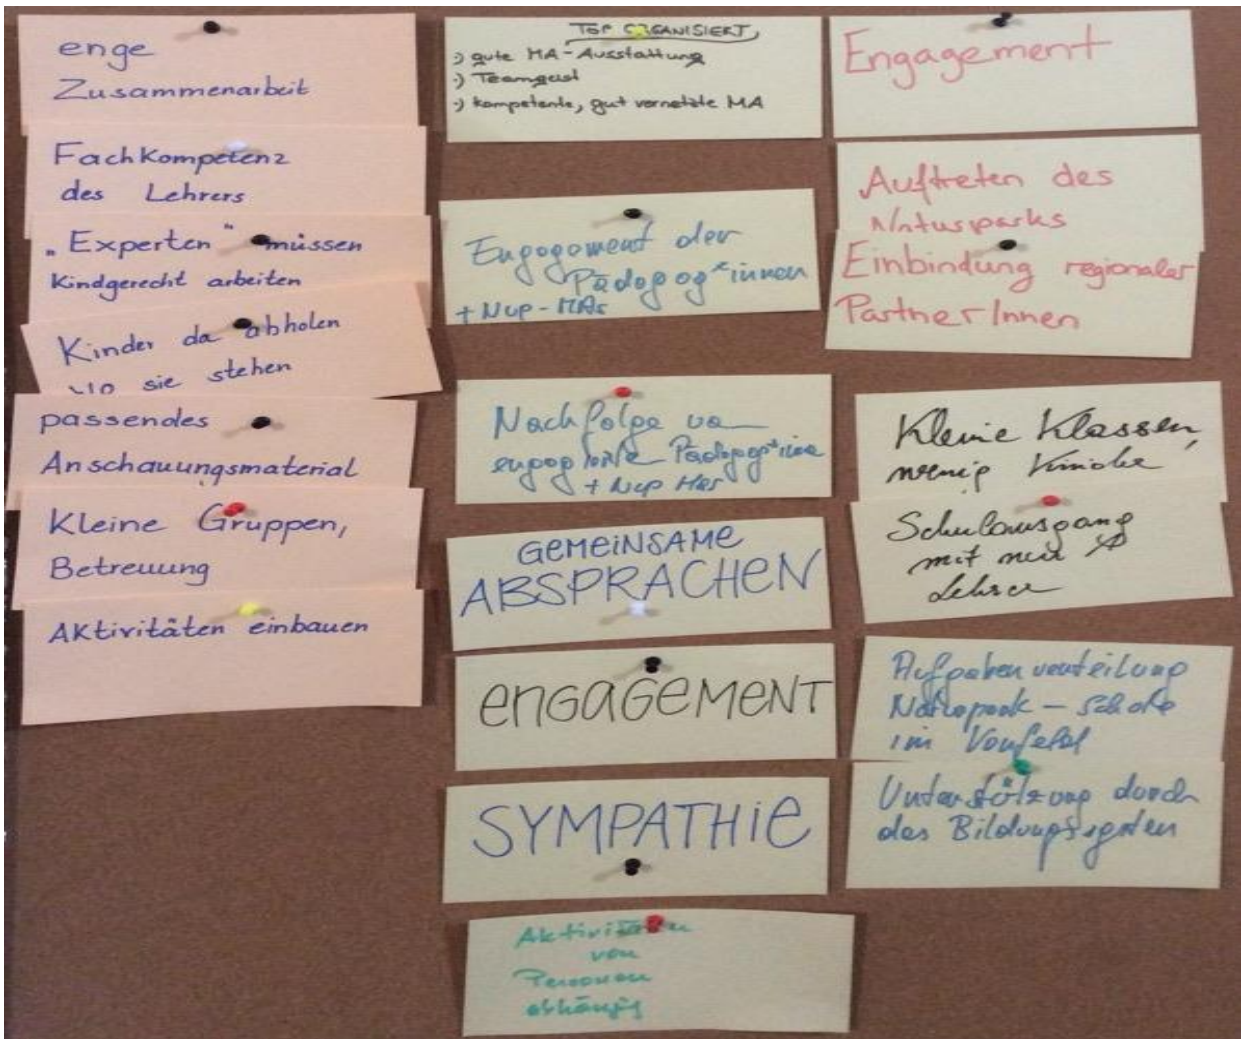 enge
Zusammenarbeit
Fachkompetenz
des Lehrers
„Experten" müssen
Kindgerecht arbeiten
Kinder da abholen
wo sie stehen
passendes
Anschauungsmaterial
Kleine Gruppen,
Betreuung
Aktivitäten einbauen
TOP ORGANISIERT
·) gute MA-Ausstattung
·) Teamgeist
·) kompetente, gut vernetzte MA
Engagement der
Pädagog*innen
+ Nup-MAs
Nachfolge von
engagierte Pädagog*innen
+ Nup MAs
GEMEINSAME
ABSPRACHEN
ENGAGEMENT
SYMPATHIE
Aktivitäten
von
Personen
abhängig
Engagement
Auftreten des
Naturparks
Einbindung regionaler
PartnerInnen
Kleine Klassen,
wenig Kinder
Schulausgang
mit nur
Lehrer
Aufgabenverteilung
Naturpark – Schule
im Vorfeld
Unterstützung durch
das Bildungssystem